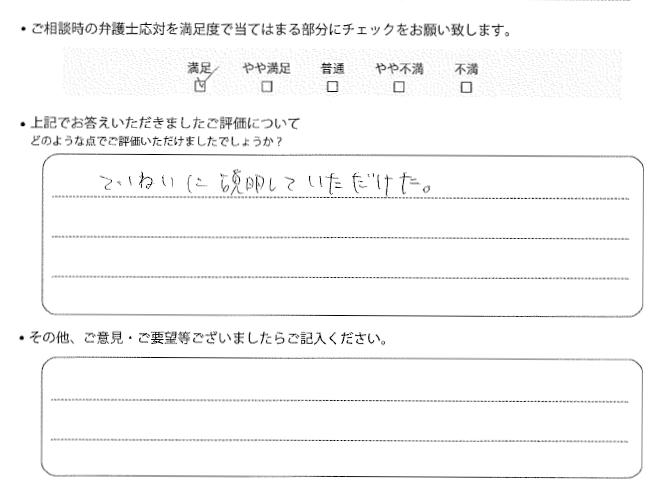 ・ご相談時の弁護士応対を満足度で当てはまる部分にチェックをお願い致します。
満足 やや満足 普通 やや不満 不満
☑ □ □ □ □
・上記でお答えいただきましたご評価について
どのような点でご評価いただけましたでしょうか？
ていねいに説明していただけた。
・その他、ご意見・ご要望等ございましたらご記入ください。